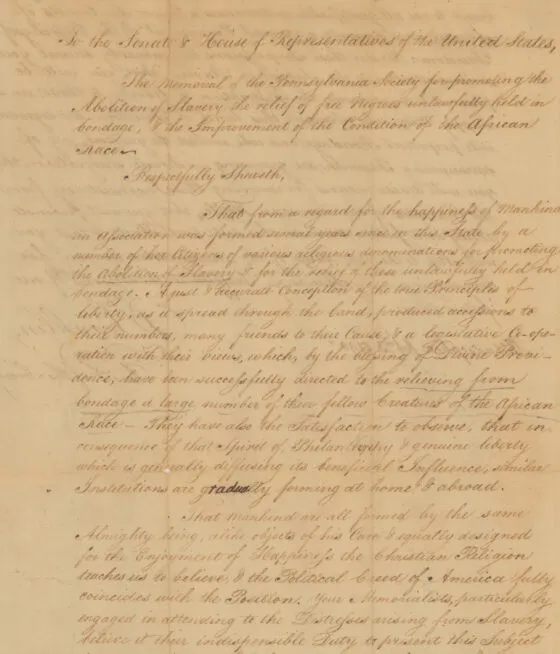 To the Senate & House of Representatives of the United States,
The Memorial of the Pennsylvania Society for promoting the
Abolition of Slavery, the relief of free Negroes unlawfully held in
bondage, & the Improvement of the Condition of the African
Race
Respectfully Sheweth,
That from a regard for the happiness of Mankind
an Association was formed several years since in this State by a
number of her Citizens of various religious denominations for promoting
the Abolition of Slavery & for the relief of those unlawfully held in
bondage. A just & accurate Conception of the true Principles of
liberty, as it spread through the land, produced accessions to
their numbers, many friends to their Cause, & a legislative Co-ope-
ration with their views, which, by the blessing of Divine Provi-
dence, have been successfully directed to the relieving from
bondage a large number of their fellow Creatures of the African
Race - They have also the Satisfaction to observe, that in
consequence of that Spirit of Philanthropy & genuine liberty
which is generally diffusing its beneficial Influence, similar
Institutions are gradually forming at home & abroad.
That mankind are all formed by the same
Almighty being, alike objects of his Care & equally designed
for the Enjoyment of Happiness the Christian Religion
teaches us to believe, & the Political Creed of America fully
coincides with the Position. Your Memorialists, particularly
engaged in attending to the Distresses arising from Slavery,
believe it their indispensible Duty to present this Subject